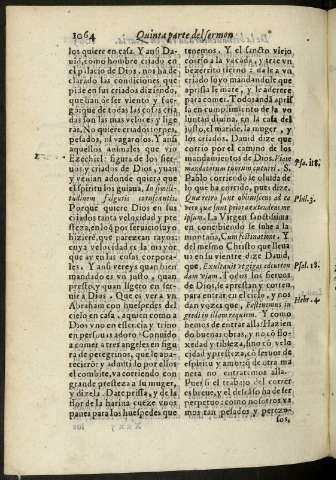 1064 Quinta parte del sermon
los quiere en casa. Y assi Da-
uid, como hombre criado en
el palacio de Dios, nos ha de
clarado las condiciones que
pide en sus criados diziendo,
que han de ser viento y fue-
go: que de todas las cosas cria-
das son las mas veloces y lige
ras. No quiere criados torpes,
pesados, ni vagarosos. Y assi
aquellos animales que vio
Ezechiel: figura de los sier-
uos, y criados de Dios, yuan
y venian adonde quiera que
el spiritu los guiaua, In simili-
tudinem fulguris coruscantis.
Porque quiere Dios en sus
criados tanta velocidad, y pre
steza, en lo que por seruicio suyo
hiziere, que parezcan rayos:
cuya velocidad es la mayor
que ay en las cosas corpora-
les. Y assi vereys quan bien
mandado es vn justo, quan
presto, y quan ligero en ser-
uir a Dios. Que es ver a vn
Abraham con huespedes del
cielo en casa, a quien como a
Dios vno en essencia, y trino
en personas adoro? Combido
a comer a tres angeles en figu
ra de peregrinos, que le apa-
recieron: y admitido por ellos
el combite, va corriendo con
grande presteza a su muger,
y dizela. Date prissa, y de la
flor de la harina cueze vnos
panes para los huespedes que
tenemos. Y el sancto viejo,
corrio a la vacada, y trae vn
bezerrito tierno: da le a vn
criado suyo mandadole, que a
aprissa le mate, y le aderece
para comer. Toda anda aprissa
en cumplimiento de la vo-
luntad diuina, en la casa del
justo, el marido, la muger, y
los criados. Dauid dize que
corrio por el camino de los
mandamientos de Dios. Viam
mandatorum tuorum cucurri. S.
Pablo corriendo se oluida de
lo que ha corrido, pues dize.
Quæ retro sunt obliuiscens ad ea
vero, quæ sunt priora extendens me
ipsum. La Virgen sanctissima
en concibiendo se sube a la
montaña, Cum festinatione. Y
del mesmo Christo que lleua
ua en su vientre dize Dauid,
que, Exultauit vt gigas ad curren
dam viam. Y todos los sieruos
de Dios, se aprestan y corren,
para entrar en el cielo, y nos
dan vozes que, Festinemus in-
gredi in illam requiem. Y como
hemos de entrar alla? Hazien
do buenas obras, y no cõ flo-
xedad y tibieza, sino cõ velo
cidad y presteza, cõ feruor de
espiritu y amor: q̃ de otra ma
nera no entraremos alla.
Pues si el trabajo del correr
es breue, y el descanso ha de ser
perpetuo: como nosotros va
mos tan pesados y perezo-
sos,
Psa. 118.
Phil. 3.
Psal. 18.
Hebr. 4.